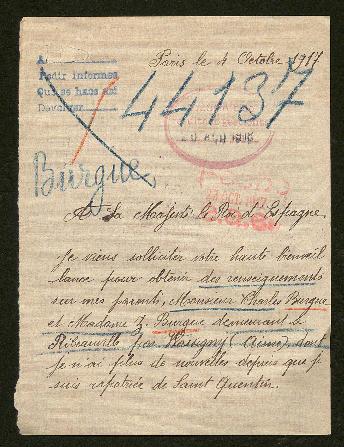 Paris le 4 Octobre 1917
Pedir informes
Que se hace así
Devolver
44137
Burgue
A Sa Majesté le Roi d'Espagne
Je viens solliciter votre haute bienveil
lance pour obtenir des renseignements
sur mes parents, Monsieur Charles Burgue
et Madame Z. Burgue demeurant à
Ribeauville par (Aisne) dont
je n'ai plus de nouvelles depuis que je
suis rapatriée de Saint Quentin.